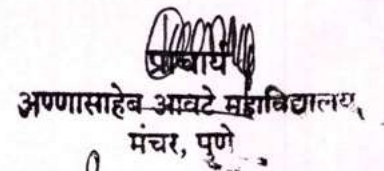 प्राचार्य
अण्णासाहेब आवटे महाविद्यालय,
मंचर, पुणे